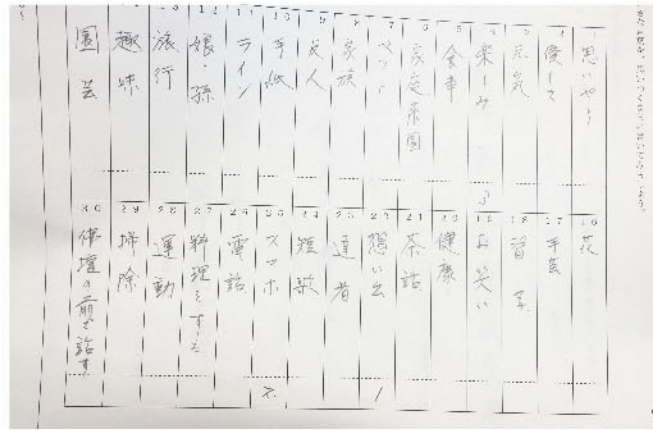 1 思いやり
2 優しさ
3 元気
4 楽しみ
5 食事
6 家庭菜園
7 ペット
8 家族
9 友人
10 手紙
11 ライン
12 娘・孫
13 旅行
14 趣味
15 園芸
16 花
17 手芸
18 習字
19 お笑い
20 健康
21 茶話
22 想い出
23 達者
24 短歌
25 スマホ
26 電話
27 料理をする
28 運動
29 掃除
30 佛壇の前で話す